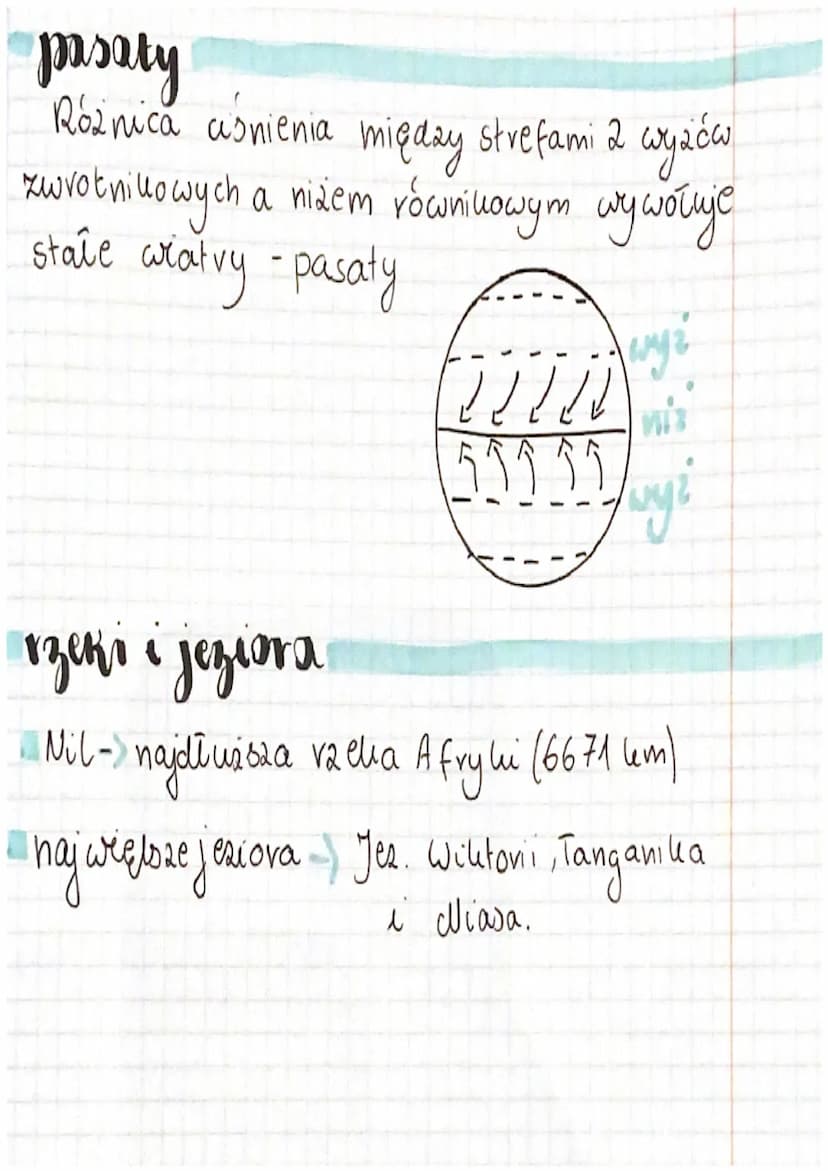 pasaty
Różnica ciśnienia między strefami 2 wyżów
zwrotnikowych a niżem równikowym wywołuje
stałe wiatry - pasaty
wyż
niż
wyż
rzeki i jeziora
Nil -> najdłuższa rzeka Afryki (6671 km)
największe jeziora -> Jez. Wiktorii, Tanganika
i Niasa.